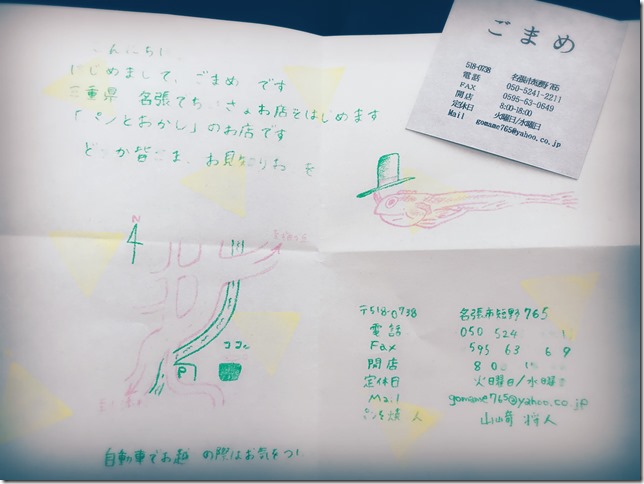 こんにちは
はじめまして、ごまめ です
三重県 名張でちいさなお店をはじめます
「パンとおかし」のお店です
どうか皆さま、お見知りおを
ごまめ
518-0738 名張市短野765
電話 050-5241-2211
FAX 0595-63-0649
開店 8:00-18:00
定休日 火曜日/水曜日
Mail gomame765@yahoo.co.jp
N
ココ
P
〒518-0738 名張市短野765
電話 050 524
Fax 595 63 6 9
開店 8 0
定休日 火曜日/水曜日
Mail gomame765@yahoo.co.jp
パンを焼く人 山﨑 将人
自動車でお越 の際はお気をつ